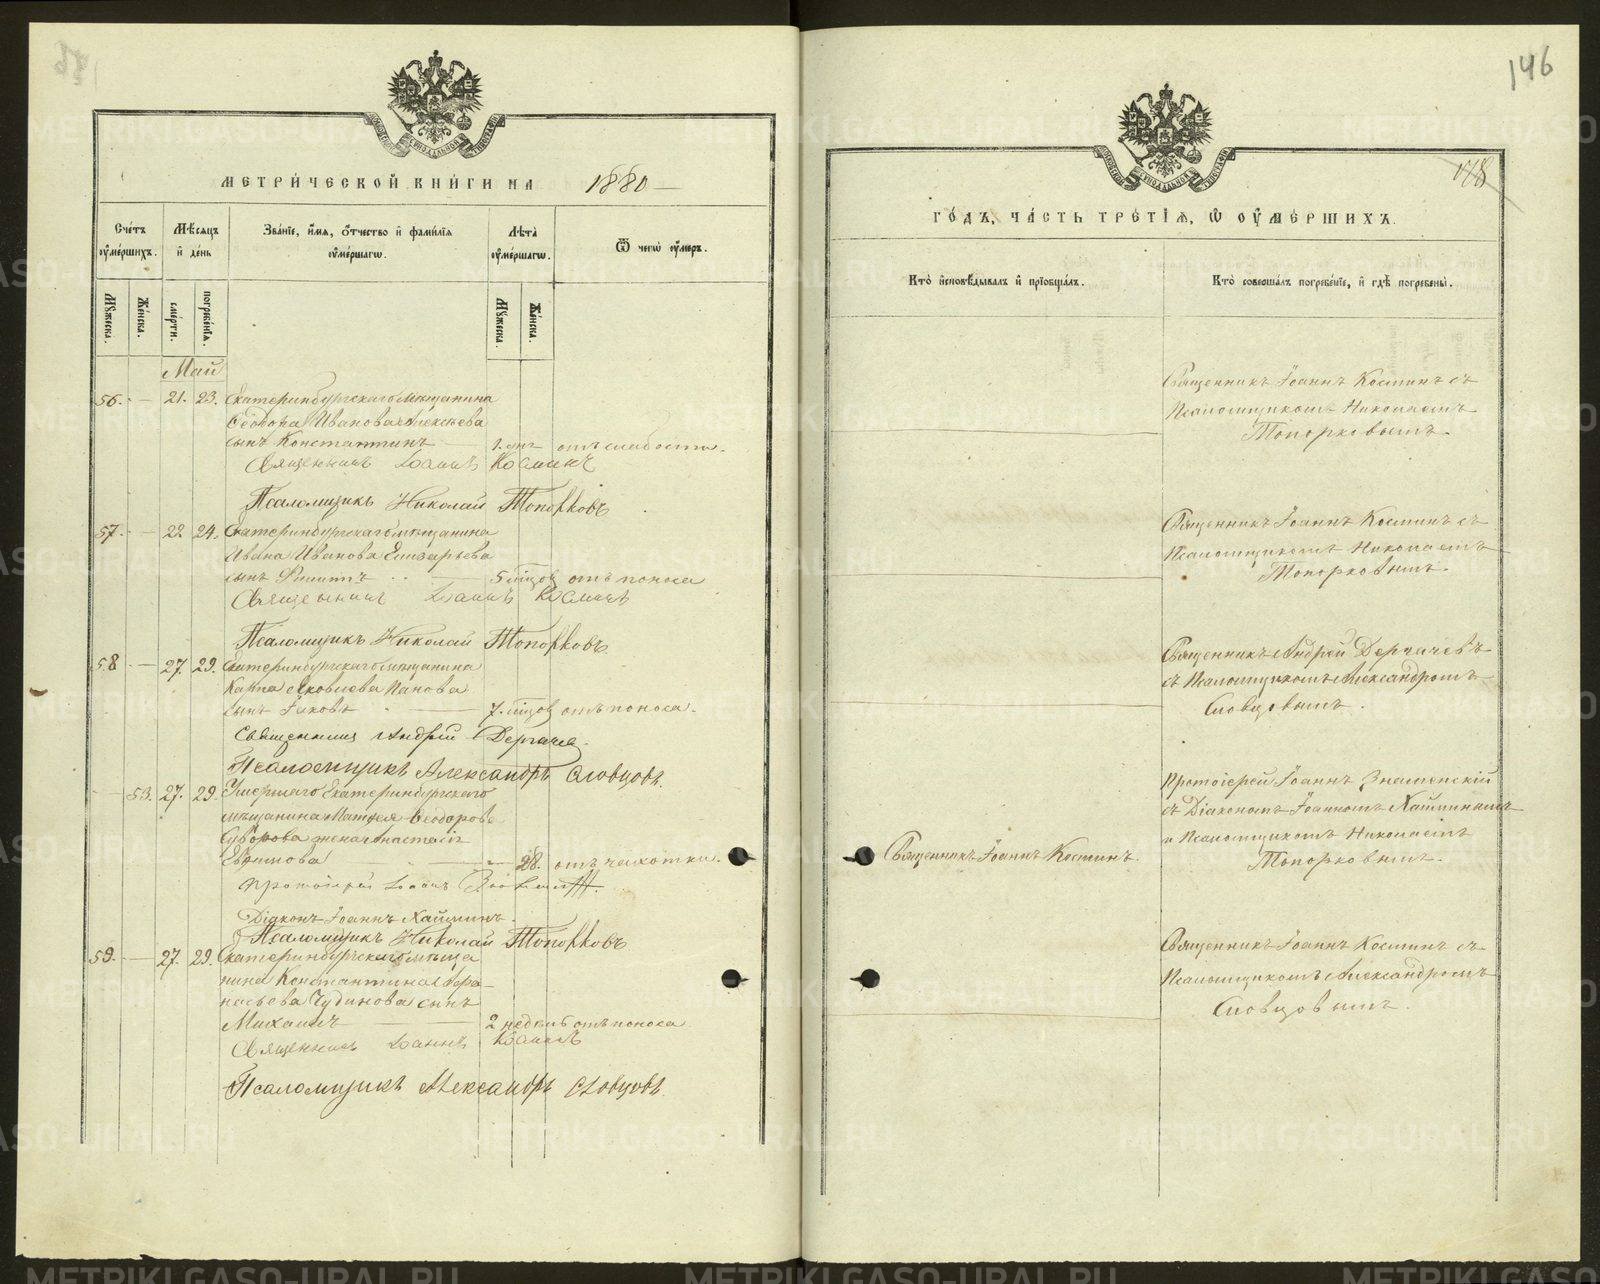 МЕТРИ́ЧЕСКОЙ КНИ́ГИ НА 1880
Сче́тъ оу҆ме́ршихъ.
Мѣ́сѧцъ и҆ де́нь
Зва́нїе, и҆́мѧ, ѻ҆́тчество и҆ фами́лїѧ оу҆ме́ршагѡ.
Лѣ́та оу҆ме́ршагѡ.
Ѿ чегѡ̀ оу҆́меръ.
Мꙋ́жеска.
Же́нска.
сме́рти.
погребе́нїѧ.
Мꙋ́жеска.
Же́нска.
Май
56. — 21. 23. Екатеринбургскаго мѣщанина
Ѳеодора Иванова Алексѣева
сынъ Константинъ — 1. дн. отъ слабости.
Священникъ Іоаннъ Косминъ
Псаломщикъ Николай Топорковъ
57. — 22 24. Екатеринбургскаго мѣщанина
Ивана Иванова Елизарьева
сынъ Филиппъ — 5 мѣсяц отъ поноса
Священникъ Іоаннъ Косминъ
Псаломщикъ Николай Топорковъ
58 — 27. 29. Екатеринбургскаго мѣщанина
Карпа Яковлева Панова
сынъ Іаковъ — 7. мѣсяц отъ поноса.
Священникъ Андрей Дергачев
Псаломщикъ Александръ Словцовъ.
— 53. 27. 29. Умершаго Екатеринбургскаго
мѣщанина Матѳея Ѳеодорова
Суворова жена Анастасія
Евѳимова — 28. отъ чахотки.
Протоіерей Іоаннъ Знаменскій
Діаконъ Іоаннъ Хайминъ.
Псаломщикъ Николай Топорковъ
59. — 27. 29. Екатеринбургскаго мѣща
нина Константина Аѳа-
насьева Чудинова сынъ
Михаилъ — 2 недѣль отъ поноса
Священникъ Іоаннъ Косминъ
Псаломщикъ Александръ Словцовъ.
146
148
ГО́ДЪ, ЧА́СТЬ ТРЕ́ТЇѦ, Ѡ҆ ОУ҆МЕ́РШИХЪ.
Кто̀ и҆сповѣ́дывалъ и҆ прїѡбща́лъ.
Кто̀ соверша́лъ погребе́нїе, и҆ гдѣ̀ погребены̀.
Священникъ Іоаннъ Косминъ съ
Псаломщикомъ Николаемъ
Топорковымъ.
Священникъ Іоаннъ Косминъ съ
Псаломщикомъ Николаемъ
Топорковымъ.
Священникъ Андрей Дергачевъ
съ Псаломщикомъ Александромъ
Словцовымъ.
Священникъ Іоаннъ Косминъ.
Протоіерей Іоаннъ Знаменскій
съ Діакономъ Іоанномъ Хайминымъ
и Псаломщикомъ Николаемъ
Топорковымъ.
Священникъ Іоаннъ Косминъ съ
Псаломщикомъ Александромъ
Словцовымъ.
METRIKI.GASO-URAL.RU